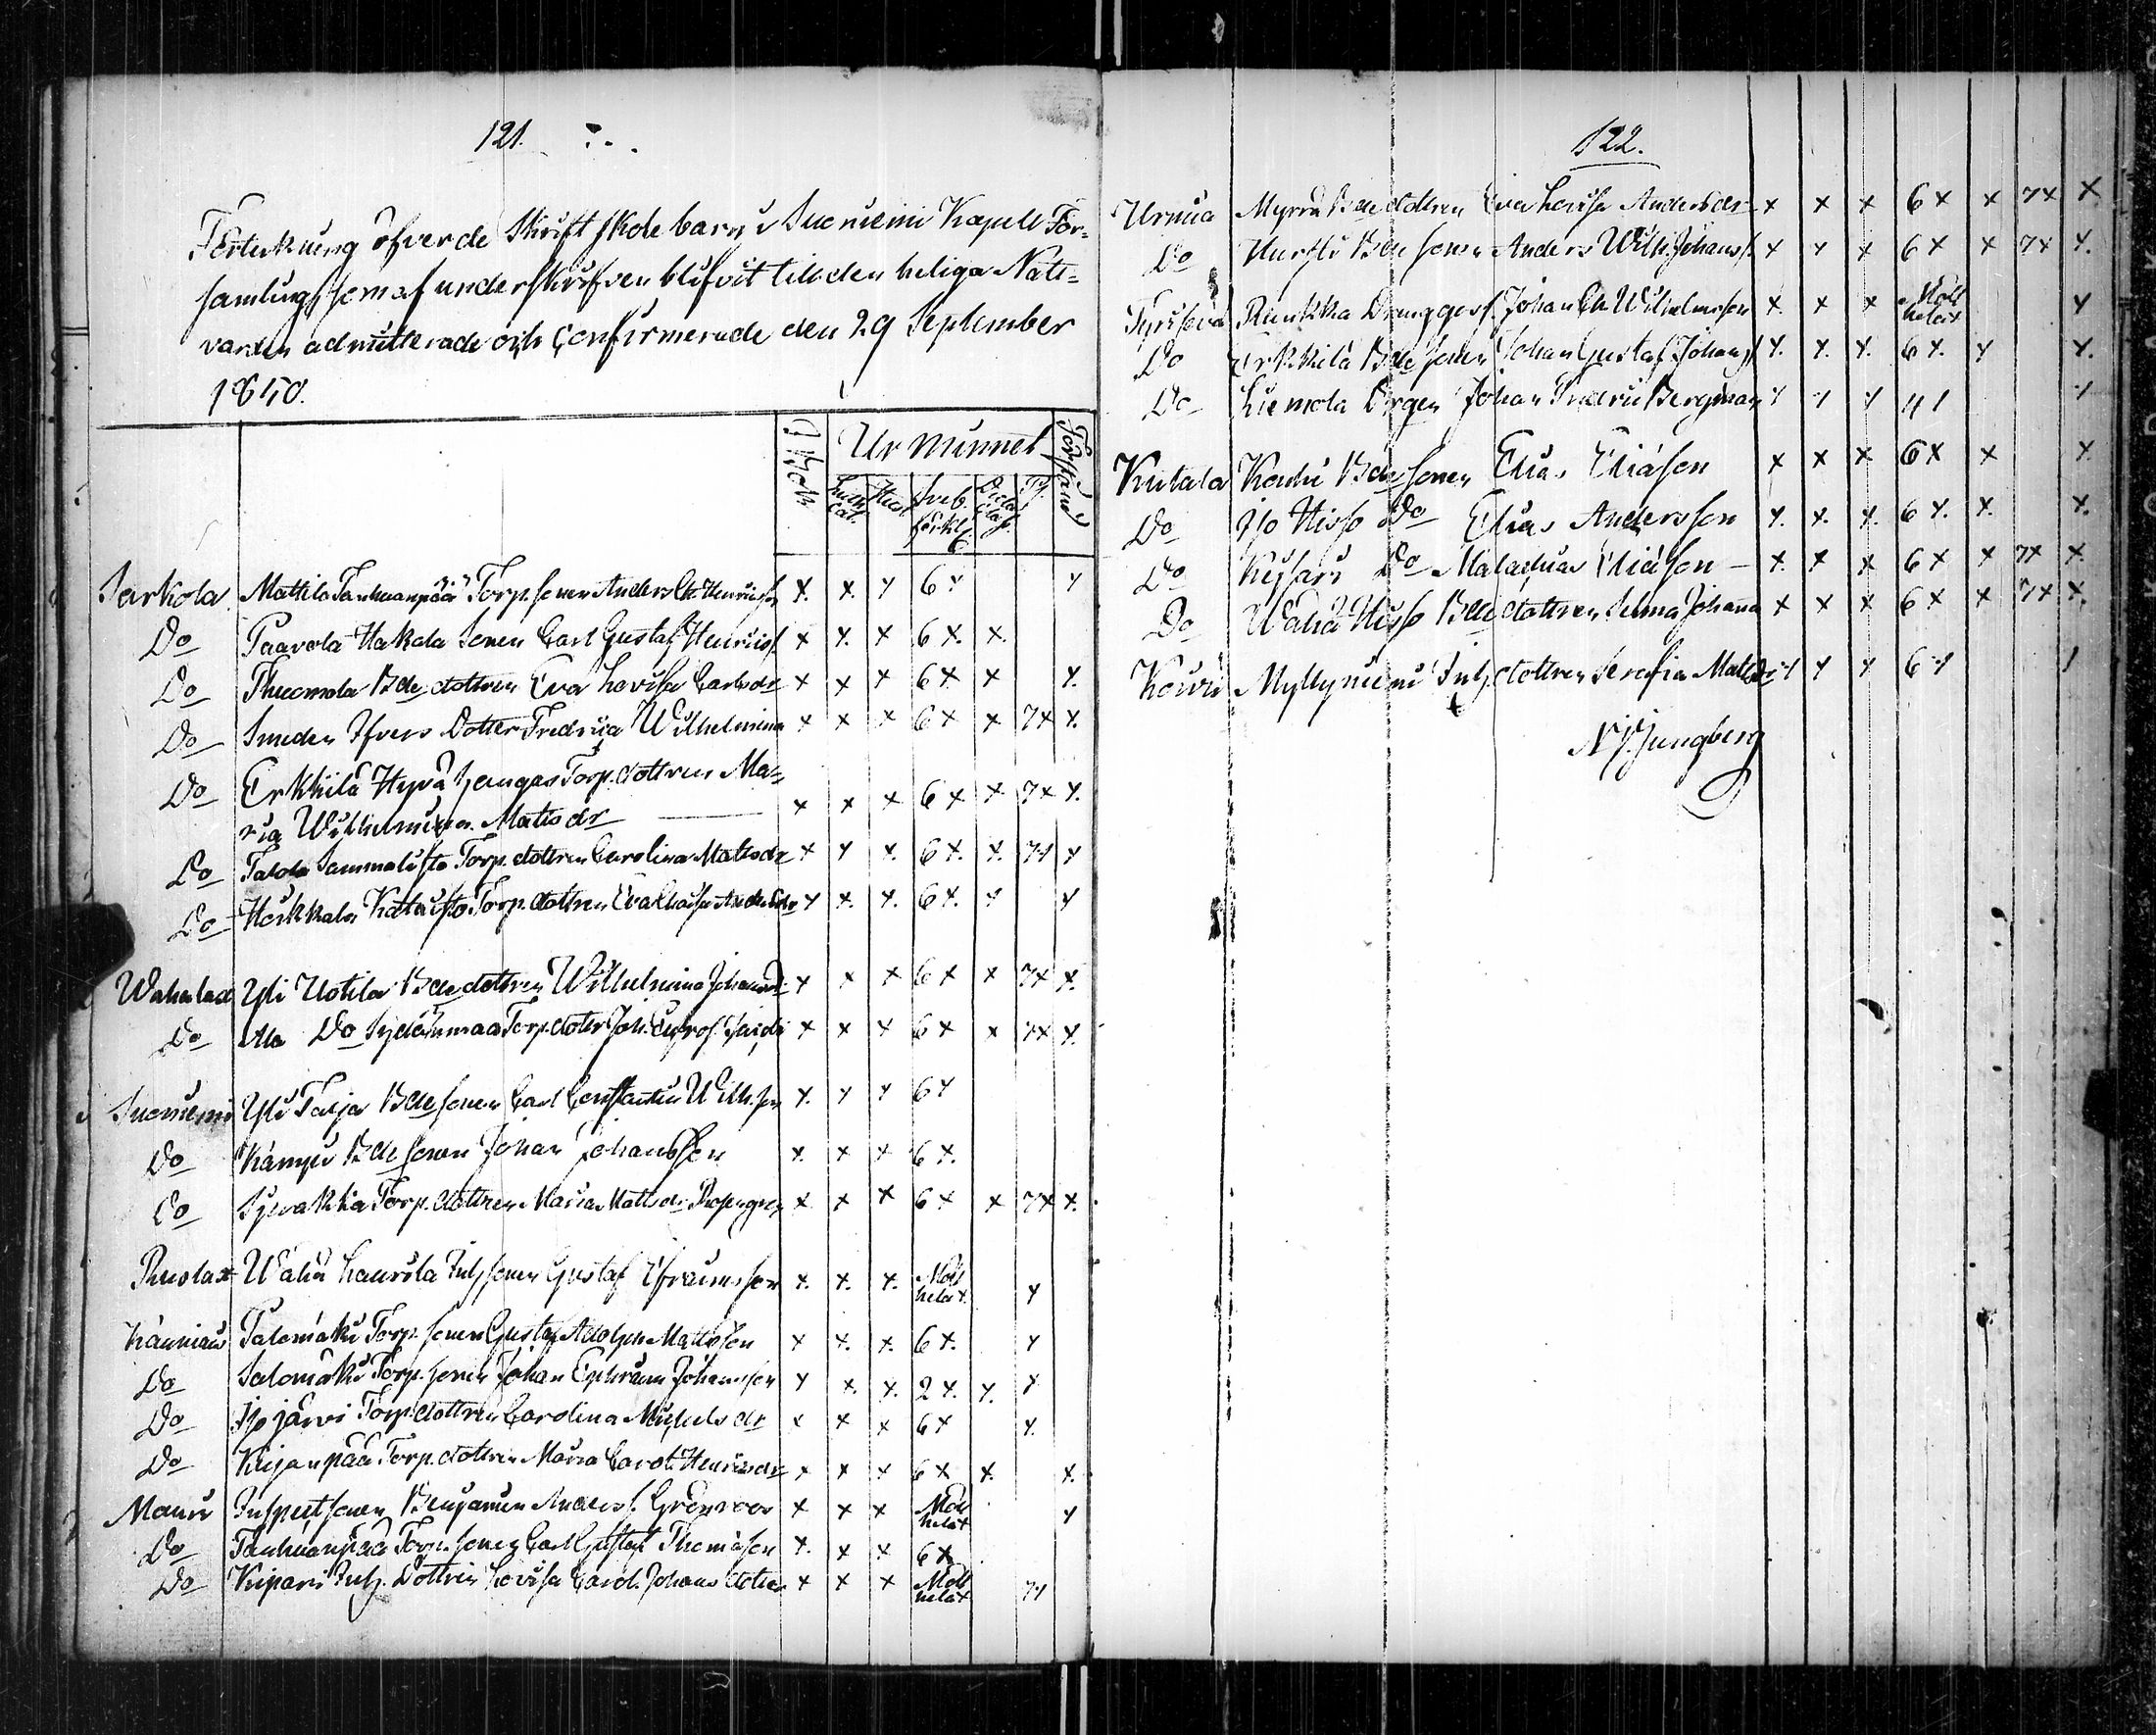 121.
Förtekning öfver de Skriftskole barn i Suoniemi Kapell För=
samling, som af underskrifven blifvit till den heliga Natt=
varden admitterade och Confirmerade den 29 September
1850.
I Bok Ur minnet Förstånd
Luth. cat. Hust. Sveb. förkl.
Sarkola Mattila Tanhuanpää Torp. sonen Anders Er. Henricss. x. x. x 6 x x
Do Paavola Hakala Sonen Carl Gustaf Henricss. x x. x 6 x. x.
Do Thuomola Bde dottren Eva Lovisa Carlsdr x x x 6 x x x.
Do Smeden Ifvers Dotter Fredrica Wilhelmina x x x 6 x x 7 x x.
Do Erkkilä Hyrä Torp. dottren Ma=
ria Wilhelmina Matsdr x x x 6 x x 7 x x.
Do Talola Sammalisto Torp. dottren Carolina Mattsdr x x x. 6 x. x. 7 x x
Do Heikkala Katajisto Torp. dottren Eva Lovisa Andersdr x x. x. 6 x. x x
Wahalax Yli Uotila Bde dottren Wilhelmina Johansdr x x x 6 x x 7 x x.
Do Ala Do Sydänmaa Torp. dottr Joh. x x x 6 x x 7 x x.
Suoniemi Yli Talja Bde sonen Carl Constantin Wilh. son x. x x 6 x
Do Kämpi Bde sonen Johan Johansson x. x x 6 x.
Do Sydvakkia Torp. dottren Maria Mattsdr x x x 6 x x 7 x x.
Ruolax Wähä Laurila Inh. sonen Gustaf Efraimsson x. x. x. Moll helax x
Känniäis Palomäki Torp. sonen Gustaf Adolph Mattsson x x. x. 6 x. x
Do Salomäki Torp. sonen Johan Ephraim Johansson x x. x. 2 x. x. x
Do Isojärvi Torp. dottren Carolina Michelsdr x x x 6 x x.
Do Kuijanpää Torp. dottren Maria Carol. Henricsdr x x x 6 x x. x.
Mauri Inspect sonen Benjamin Anderss. Grönroos x x x Moll helax x
Do Tanhuanpää Torp. sonen Carl Gustaf Thomasson x. x x 6 x
Do Kupari Inh. Dottren Lovisa Carol. Johans dotter x x x Moll helax 7 x
122.
Urmia Myrrä Bde dottren Eva Lovisa Andersdr x x x 6 x x 7 x x
Do Hurski Bde sonen Anders Wilh. Johanss. x x x 6 x x 7 x x.
Runkka Drenggoss. Johan Er. Wilhelmsson x. x x Moll helax x
Do Erkkilä Bde sonen Johan Gustaf Johanss. x. x. x. 6 x. x x.
Do Liemola Johan Fredric Bergman x x x x
Kutala Kauhi Bde sonen Elias Eliason x x x 6 x x x.
Do Iso Hisso Do Elias Andersson x. x. x. 6 x. x. x.
Do Kessari Do Malachias Eliason – x. x x 6 x x 7 x x.
Do Wähä Hisso Bde dottren Selma Johanna x x x 6 x x 7 x x.
Kouri Myllyniemi Inh. dottren Serafia Matsdr x x x 6 x
N Ljungberg